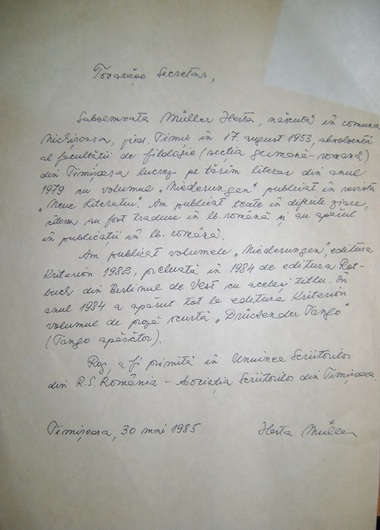 Tovarășe Secretar,
Subsemnata Müller Herta, născută în comuna
Nichișoara, jud. Timiș în 17 august 1953, absolventă
al facultății de filologie (secția germană-română)
din Timișoara lucrez pe tărîm literar din anul
1979 cu volumul "Niederungen" publicat în revista
"Neue Literatur". Am publicat texte în diferite ziare,
au fost traduse în lb. română și au apărut
în publicații în lb. română.
Am publicat volumele "Niederungen", editura
Kriterion 1982, preluată în 1984 de editura Rot-
buch din Berlinul de Vest cu același titlu. În
anul 1984 a apărut tot la editura Kriterion
volumul de proză scurtă "Drückender Tango"
(Tango apăsător).
Rog a fi primită în Uniunea Scriitorilor
din R.S. România - Asociația Scriitorilor din Timișoara.
Timișoara, 30 mai 1985 Herta Müller